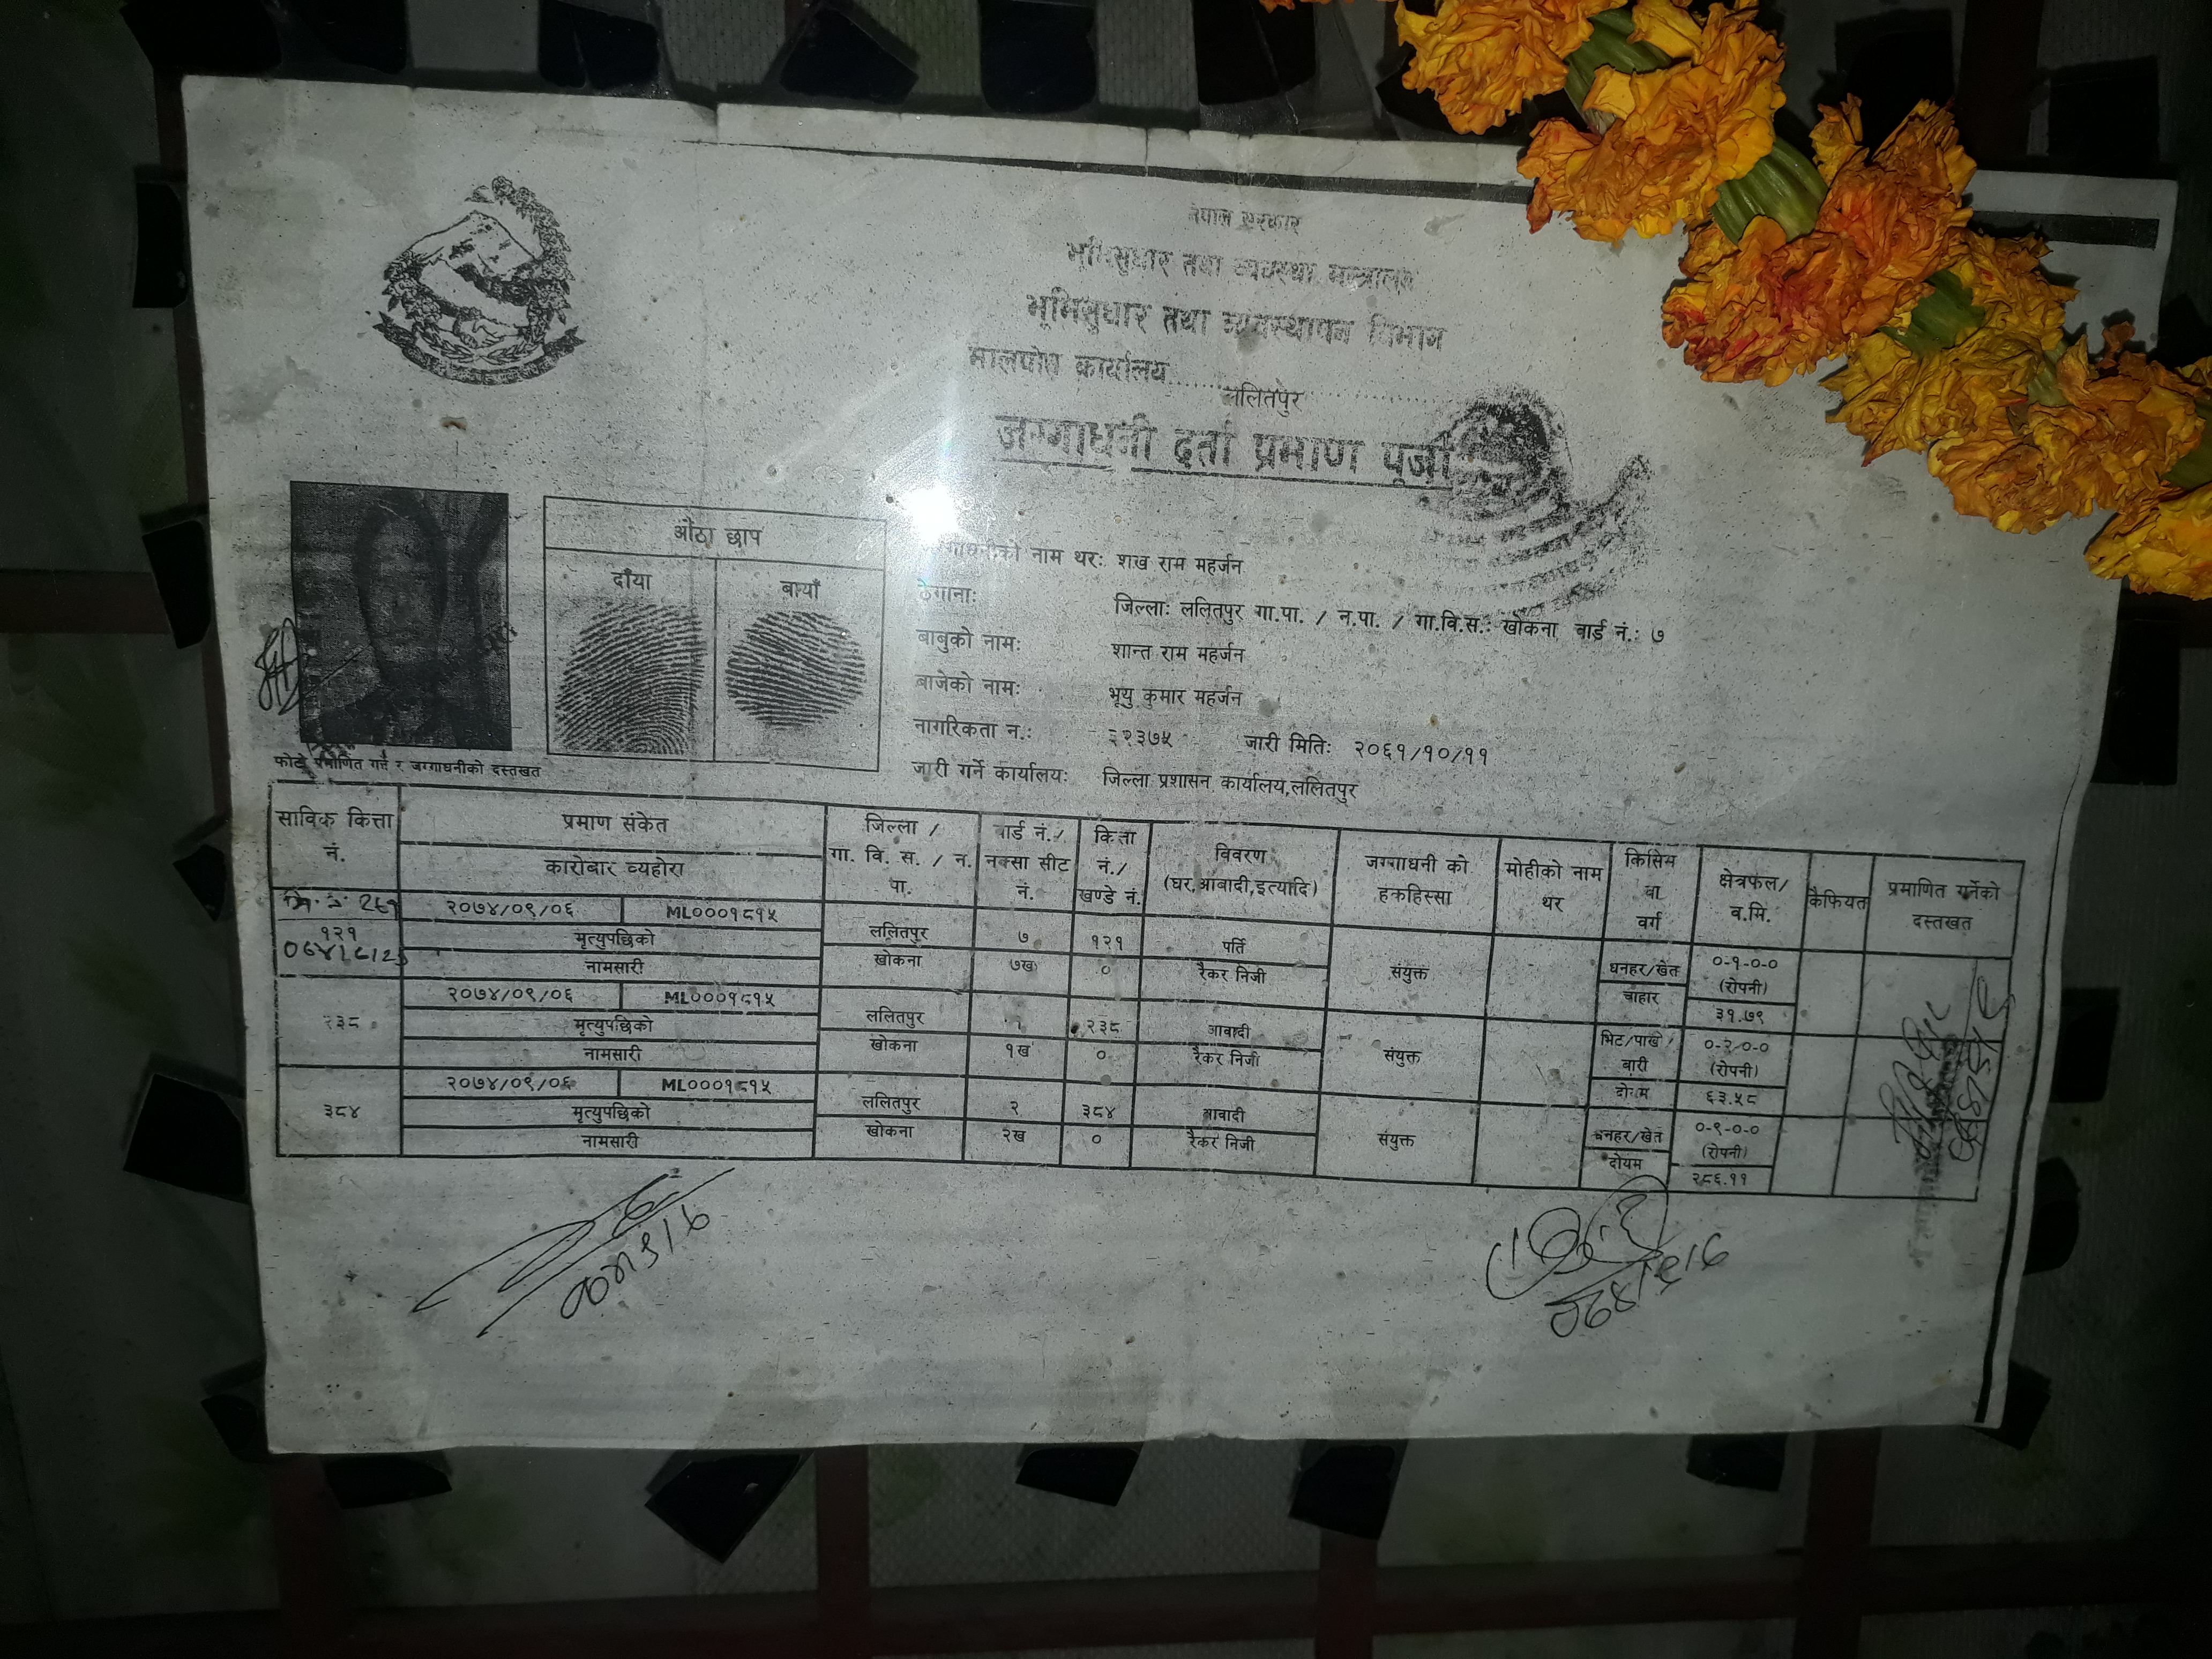 नेपाल सरकार
भूमिसुधार तथा व्यवस्था मन्त्रालय
भूमिसुधार तथा व्यवस्थापन विभाग
मालपोत कार्यालय.....ललितपुर.....
जग्गाधनी दर्ता प्रमाण पूर्जा
औंठा छाप
दाँया बायाँ
नाम थर: शख राम महर्जन
ठेगाना: जिल्ला: ललितपुर गा.पा. / न.पा. / गा.वि.स.: खोकना वार्ड नं.: ७
बाबुको नाम: शान्त राम महर्जन
बाजेको नाम: भूयु कुमार महर्जन
नागरिकता न.: ३२३७५ जारी मिति: २०६१/१०/११
जारी गर्ने कार्यालय: जिल्ला प्रशासन कार्यालय,ललितपुर
फोटो प्रमाणित गर्ने र जग्गाधनीको दस्तखत
साविक कित्ता नं. प्रमाण संकेत कारोबार व्यहोरा जिल्ला / गा. वि. स. / न. पा. वार्ड नं./ नक्सा सीट नं. कित्ता नं./ खण्डे नं. विवरण (घर,आबादी,इत्यादि) जग्गाधनी को हकहिस्सा मोहीको नाम थर किसिम वा वर्ग क्षेत्रफल/ व.मि. कैफियत प्रमाणित गर्नेको दस्तखत
२०७४/०९/०६ ML०००१८१५
१२१ मृत्युपछिको ललितपुर ७ १२१ पर्ति धनहर/खेत ०-१-०-० (रोपनी)
नामसारी खोकना ७ख ० रैकर निजी संयुक्त चाहार ३१.७९
२०७४/०९/०६ ML०००१८१५
२३८ मृत्युपछिको ललितपुर २३८ आवादी भिट/पाखो/ बारी ०-२-०-० (रोपनी)
नामसारी खोकना १ख ० रैकर निजी संयुक्त दोयम ६३.५८
२०७४/०९/०६ ML०००१८१५
३८४ मृत्युपछिको ललितपुर २ ३८४ आवादी धनहर/खेत ०-९-०-० (रोपनी)
नामसारी खोकना २ख ० रैकर निजी संयुक्त दोयम २८६.११